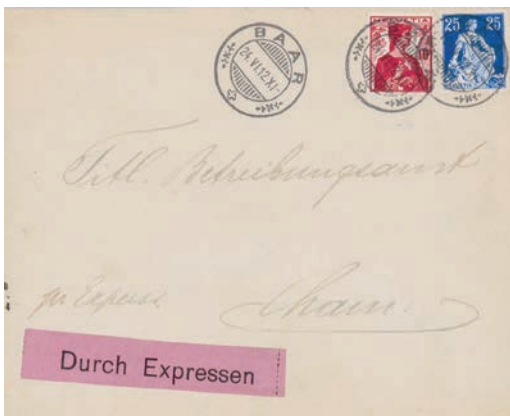 BAAR
24.VI.12.XI-
25 25
Titl. Betreibungsamt
per Express
Cham
Durch Expressen